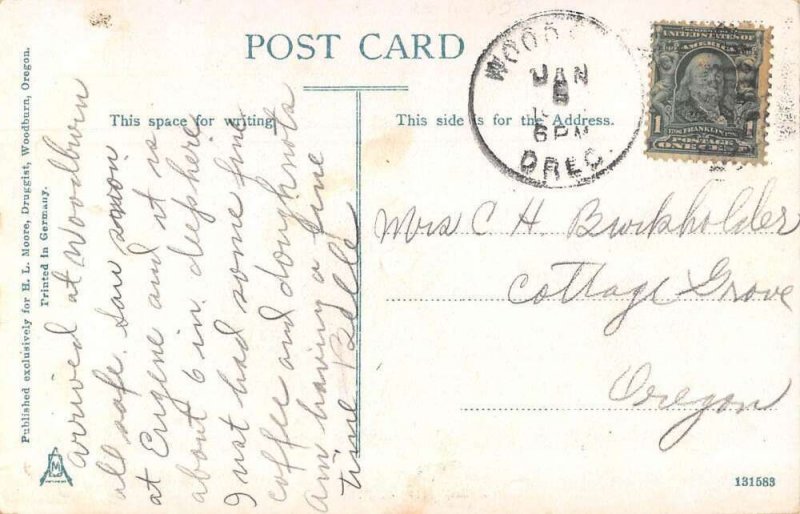 POST CARD
This space for writing
This side is for the Address.
Published exclusively for H. L. Moore, Druggist, Woodburn, Oregon.
Printed in Germany.
arrived at Woodburn
all safe. saw snow
at Eugene and it is
about 6 in. deep here
I just had some fine
coffee and doughnuts
am having a fine
time Belle
WOOD
JAN
6PM
OREG.
UNITED STATES OF
AMERICA
1
FRANKLIN
POSTAGE
ONE CENT
Mrs C H. Burkholder
Cottage Grove
Oregon
M
131583